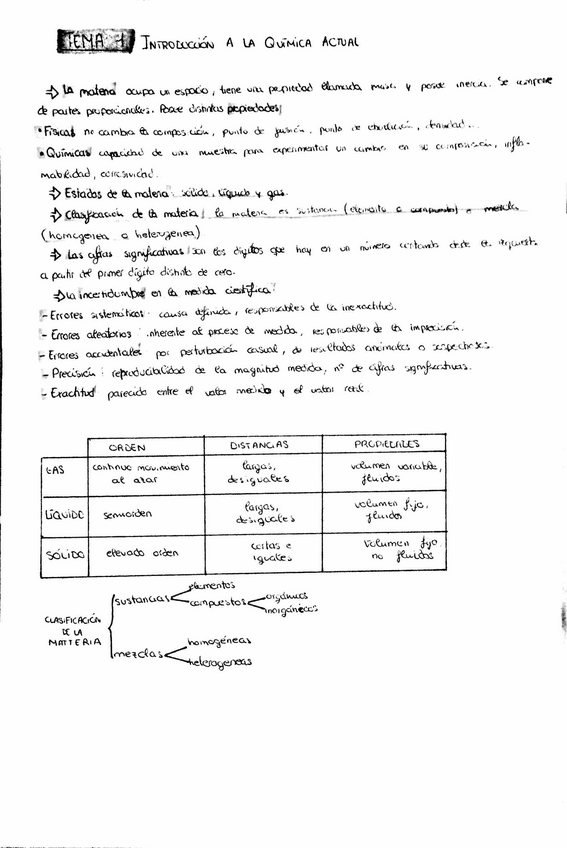 TEMA 1 INTRODUCCIÓN A LA QUÍMICA ACTUAL
⇒ La materia ocupa un espacio, tiene una propiedad llamada masa y posee inercia. Se compone
de partes proporcionales. Posee distintas propiedades:
• Físicas no cambia la composición, punto de fusión, punto de ebullición, densidad...
• Químicas capacidad de una muestra para experimentar un cambio en su composición, infla-
mabilidad, corrosividad.
⇒ Estados de la materia: sólido, líquido y gas.
⇒ Clasificación de la materia: la materia es sustancia (elemento o compuesto) o mezcla
(homogénea o heterogénea)
⇒ Las cifras significativas son los dígitos que hay en un número contando desde la
a partir del primer dígito distinto de cero.
⇒ La incertidumbre en la medida científica:
- Errores sistemáticos: causa definida, responsables de la inexactitud.
- Errores aleatorios: inherente al proceso de medida, responsables de la imprecisión.
- Errores accidentales por perturbación casual, da resultados anómalos o sospechosos.
- Precisión: reproducibilidad de la magnitud medida, nº de cifras significativas.
- Exactitud parecido entre el valor medido y el valor real.
ORDEN DISTANCIAS PROPIEDADES
GAS continuo movimiento al azar largas, desiguales volumen variable, fluidos
LÍQUIDO semiorden largas, desiguales volumen fijo, fluidos
SÓLIDO elevado orden cortas e iguales volumen fijo, no fluidos
CLASIFICACIÓN
DE LA
MATTERIA
sustancias
elementos
compuestos
orgánicos
inorgánicos
mezclas
homogéneas
heterogeneas